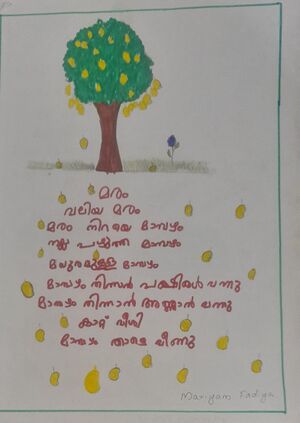 മരം
വലിയ മരം
മരം നിറയെ മാമ്പഴം
നല്ല പഴുത്ത മാമ്പഴം
മധുരമുള്ള മാമ്പഴം
മാമ്പഴം തിന്നാൻ പക്ഷികൾ വന്നു
മാമ്പഴം തിന്നാൻ അണ്ണാൻ വന്നു
കാറ്റ് വീശി
മാമ്പഴം താഴെ വീണു
Mariyam Fadiya